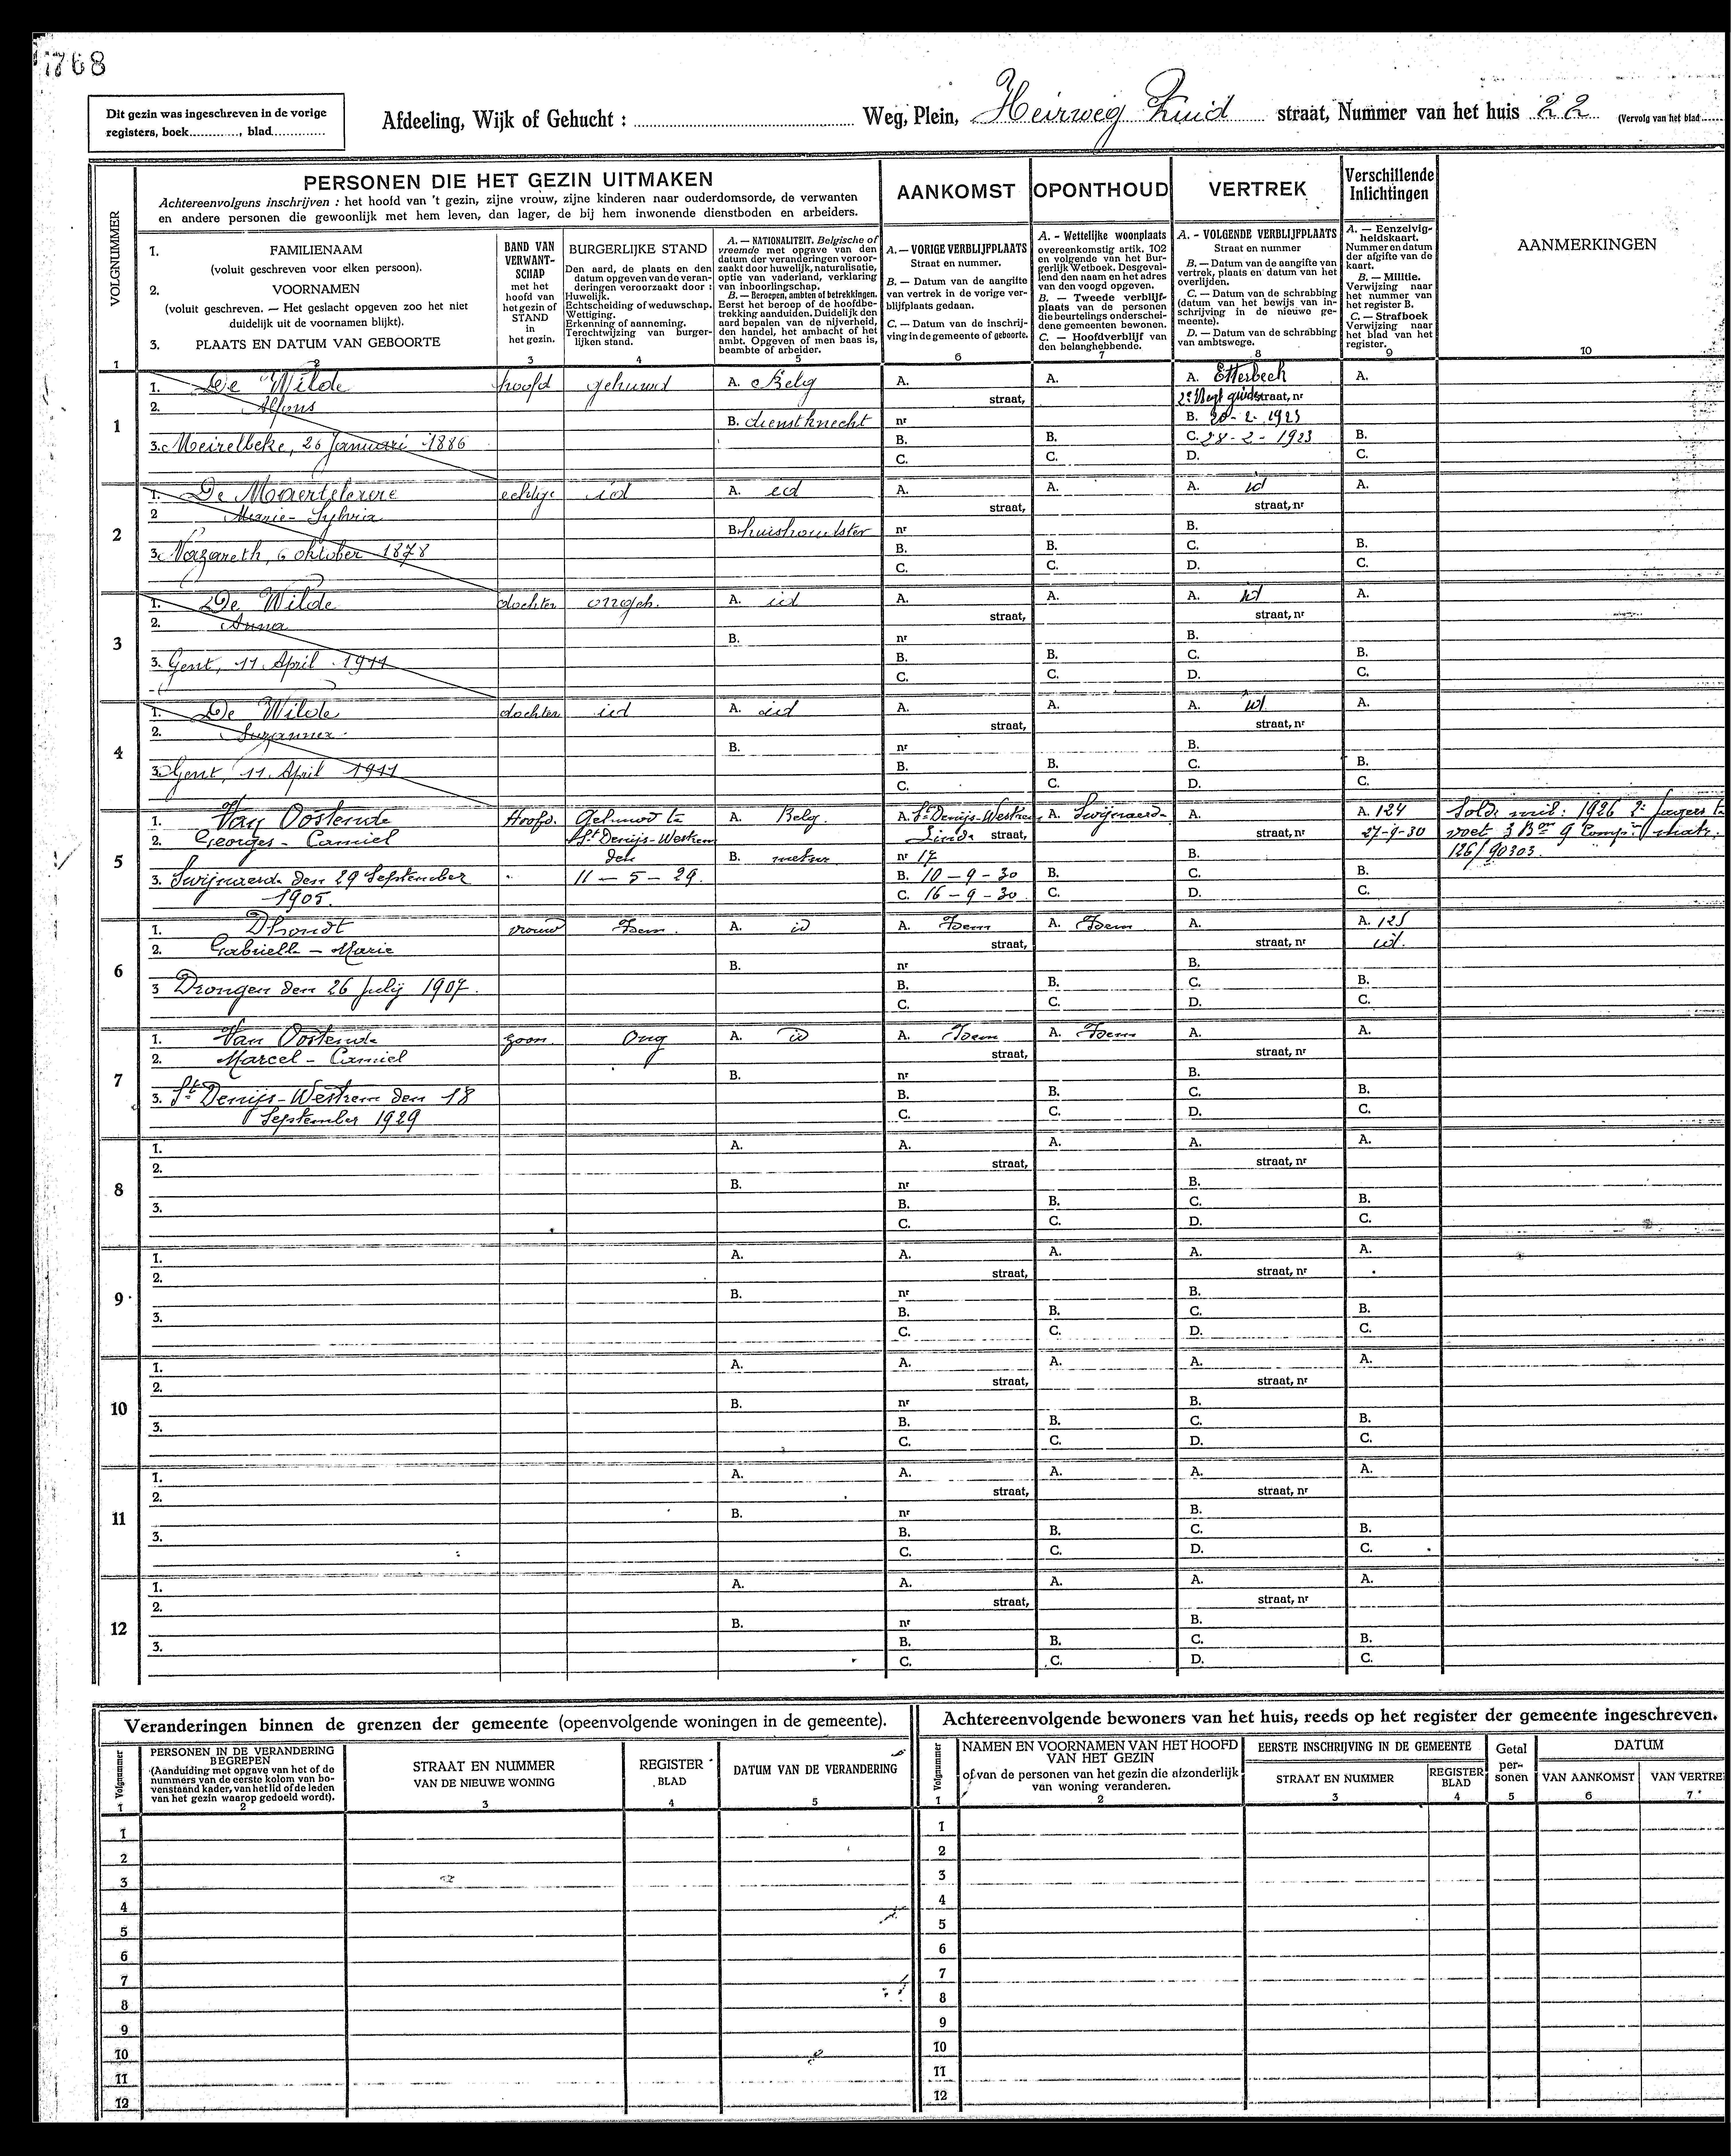 1768
Dit gezin was ingeschreven in de vorige
registers, boek............, blad.............
Afdeeling, Wijk of Gehucht : ........ Weg, Plein, Heirweg Zuid straat, Nummer van het huis 22 (Vervolg van het blad
VOLGNUMMER
PERSONEN DIE HET GEZIN UITMAKEN
Achtereenvolgens inschrijven : het hoofd van 't gezin, zijne vrouw, zijne kinderen naar ouderdomsorde, de verwanten
en andere personen die gewoonlijk met hem leven, dan lager, de bij hem inwonende dienstboden en arbeiders.
AANKOMST
OPONTHOUD
VERTREK
Verschillende
Inlichtingen
1. FAMILIENAAM
(voluit geschreven voor elken persoon).
2. VOORNAMEN
(voluit geschreven. — Het geslacht opgeven zoo het niet
duidelijk uit de voornamen blijkt).
3. PLAATS EN DATUM VAN GEBOORTE
BAND VAN
VERWANT-
SCHAP
met het
hoofd van
het gezin of
STAND
in
het gezin.
BURGERLIJKE STAND
Den aard, de plaats en den
datum opgeven van de veran-
deringen veroorzaakt door :
Huwelijk.
Echtscheiding of weduwschap.
Wettiging.
Erkenning of aanneming.
Terechtwijzing van burger-
lijken stand.
A. — NATIONALITEIT. Belgische of
vreemde met opgave van den
datum der veranderingen veroor-
zaakt door huwelijk, naturalisatie,
optie van vaderland, verklaring
van inboorlingschap.
B. — Beroepen, ambten of betrekkingen.
Eerst het beroep of de hoofdbe-
trekking aanduiden. Duidelijk den
aard bepalen van de nijverheid,
den handel, het ambacht of het
ambt. Opgeven of men baas is,
beambte of arbeider.
A. — VORIGE VERBLIJFPLAATS
Straat en nummer.
B. — Datum van de aangifte
van vertrek in de vorige ver-
blijfplaats gedaan.
C. — Datum van de inschrij-
ving in de gemeente of geboorte.
A. - Wettelijke woonplaats
overeenkomstig artik. 102
en volgende van het Bur-
gerlijk Wetboek. Desgeval-
lend den naam en het adres
van den voogd opgeven.
B. — Tweede verblijf-
plaats van de personen
die beurtelings onderschei-
dene gemeenten bewonen.
C. — Hoofdverblijf van
den belanghebbende.
A. - VOLGENDE VERBLIJFPLAATS
Straat en nummer
B. — Datum van de aangifte van
vertrek, plaats en datum van het
overlijden.
C. — Datum van de schrabbing
(datum van het bewijs van in-
schrijving in de nieuwe ge-
meente).
D. — Datum van de schrabbing
van ambtswege.
A. — Eenzelvig-
heidskaart.
Nummer en datum
der afgifte van de
kaart.
B. — Militie.
Verwijzing naar
het nummer van
het register B.
C. — Strafboek
Verwijzing naar
het blad van het
register.
AANMERKINGEN
1 2 3 4 5 6 7 8 9 10
1
1. De Wilde hoofd gehuwd A. Belg A. A. A. Etterbeek A.
2. Alfons straat, straat, nr
B. dienstknecht nr B. 20-2-1923
3. Meirelbeke, 26 Januari 1886 B. B. C. 28-2-1923 B.
C. C. D. C.
2
1. De Maertelaere echtge id A. id A. A. A. id A.
2 Marie-Sylvia straat, straat, nr
B. huishoudster nr B.
3. Nazareth, 6 oktober 1878 B. B. C. B.
C. C. D. C.
3
1. De Wilde dochter ongeh. A. id A. A. A. id A.
2. Anna straat, straat, nr
B. nr B.
3. Gent, 11 April 1911 B. B. C. B.
C. C. D. C.
4
1. De Wilde dochter id A. id A. A. A. id A.
2. Suzanna straat, straat, nr
B. nr B.
3. Gent, 11 April 1911 B. B. C. B.
C. C. D. C.
5
1. Van Oostende Hoofd. Gehuwd te A. Belg. A. St Denijs-Westrem A. Swijnaerde A. A. 124 Sold. mil: 1926 2e Jagers te
2. Georges - Camiel St Denijs-Westrem Linde straat, straat, nr 27-9-30 voet 3 Bon 9 Comp: matr.
den B. metser nr 17 B. 126/90303
3. Swijnaerde den 29 September 11-5-29. B. 10-9-30 B. C. B.
1905. C. 16-9-30 C. D. C.
6
1. Dhondt vrouw Idem. A. id A. Idem A. Idem A. A. 125
2. Gabrielle - Marie straat, straat, nr id.
B. nr B.
3 Drongen den 26 July 1907. B. B. C. B.
C. C. D. C.
7
1. Van Oostende zoon. Ong A. id A. Idem A. Idem A. A.
2. Marcel - Camiel straat, straat, nr
B. nr B.
3. St Denijs-Westrem den 18 B. B. C. B.
September 1929 C. C. D. C.
8
1. A. A. A. A. A.
2. straat, straat, nr
B. nr B.
3. B. B. C. B.
C. C. D. C.
9
1. A. A. A. A. A.
2. straat, straat, nr
B. nr B.
3. B. B. C. B.
C. C. D. C.
10
1. A. A. A. A. A.
2. straat, straat, nr
B. nr B.
3. B. B. C. B.
C. C. D. C.
11
1. A. A. A. A. A.
2. straat, straat, nr
B. nr B.
3. B. B. C. B.
C. C. D. C.
12
1. A. A. A. A. A.
2. straat, straat, nr
B. nr B.
3. B. B. C. B.
C. C. D. C.
Veranderingen binnen de grenzen der gemeente (opeenvolgende woningen in de gemeente).
Volgnummer
PERSONEN IN DE VERANDERING
BEGREPEN
(Aanduiding met opgave van het of de
nummers van de eerste kolom van bo-
venstaand kader, van het lid of de leden
van het gezin waarop gedoeld wordt).
STRAAT EN NUMMER
VAN DE NIEUWE WONING
REGISTER
BLAD
DATUM VAN DE VERANDERING
1 2 3 4 5
1
2
3
4
5
6
7
8
9
10
11
12
Achtereenvolgende bewoners van het huis, reeds op het register der gemeente ingeschreven.
Volgnummer
NAMEN EN VOORNAMEN VAN HET HOOFD
VAN HET GEZIN
of van de personen van het gezin die afzonderlijk
van woning veranderen.
EERSTE INSCHRIJVING IN DE GEMEENTE
STRAAT EN NUMMER
REGISTER
BLAD
Getal
per-
sonen
DATUM
VAN AANKOMST VAN VERTRE
1 2 3 4 5 6 7
1
2
3
4
5
6
7
8
9
10
11
12